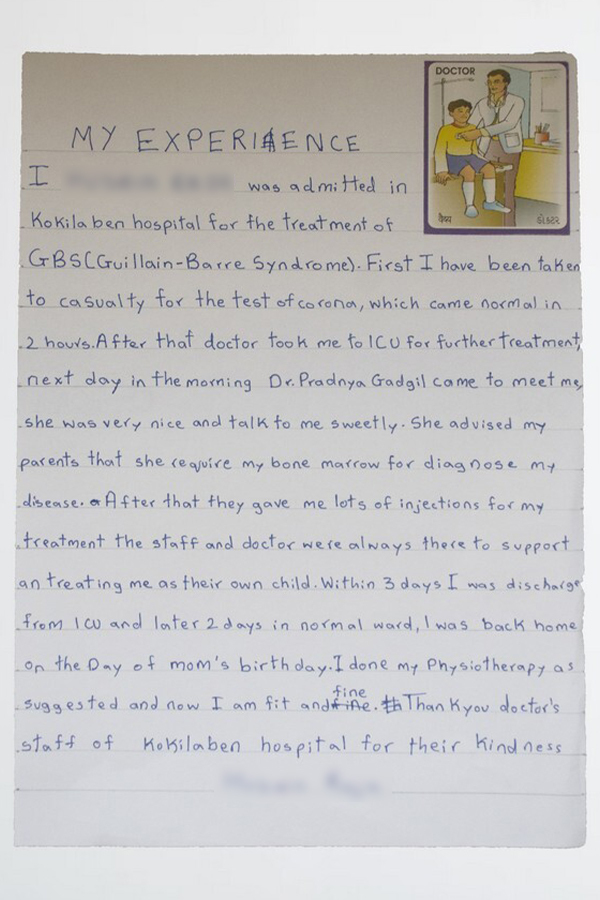 DOCTOR
वैद्य ડોક્ટર
MY EXPERIENCE
I was admitted in
Kokilaben hospital for the treatment of
GBS(Guillain-Barre Syndrome). First I have been taken
to casualty for the test of corona, which came normal in
2 hours. After that doctor took me to ICU for further treatment,
next day in the morning Dr. Pradnya Gadgil came to meet me,
she was very nice and talk to me sweetly. She advised my
parents that she require my bone marrow for diagnose my
disease. After that they gave me lots of injections for my
treatment the staff and doctor were always there to support
an treating me as their own child. Within 3 days I was discharge
from ICU and later 2 days in normal ward, I was back home
on the Day of mom's birthday. I done my Physiotherapy as
suggested and now I am fit and fine. Thankyou doctor's
staff of Kokilaben hospital for their kindness